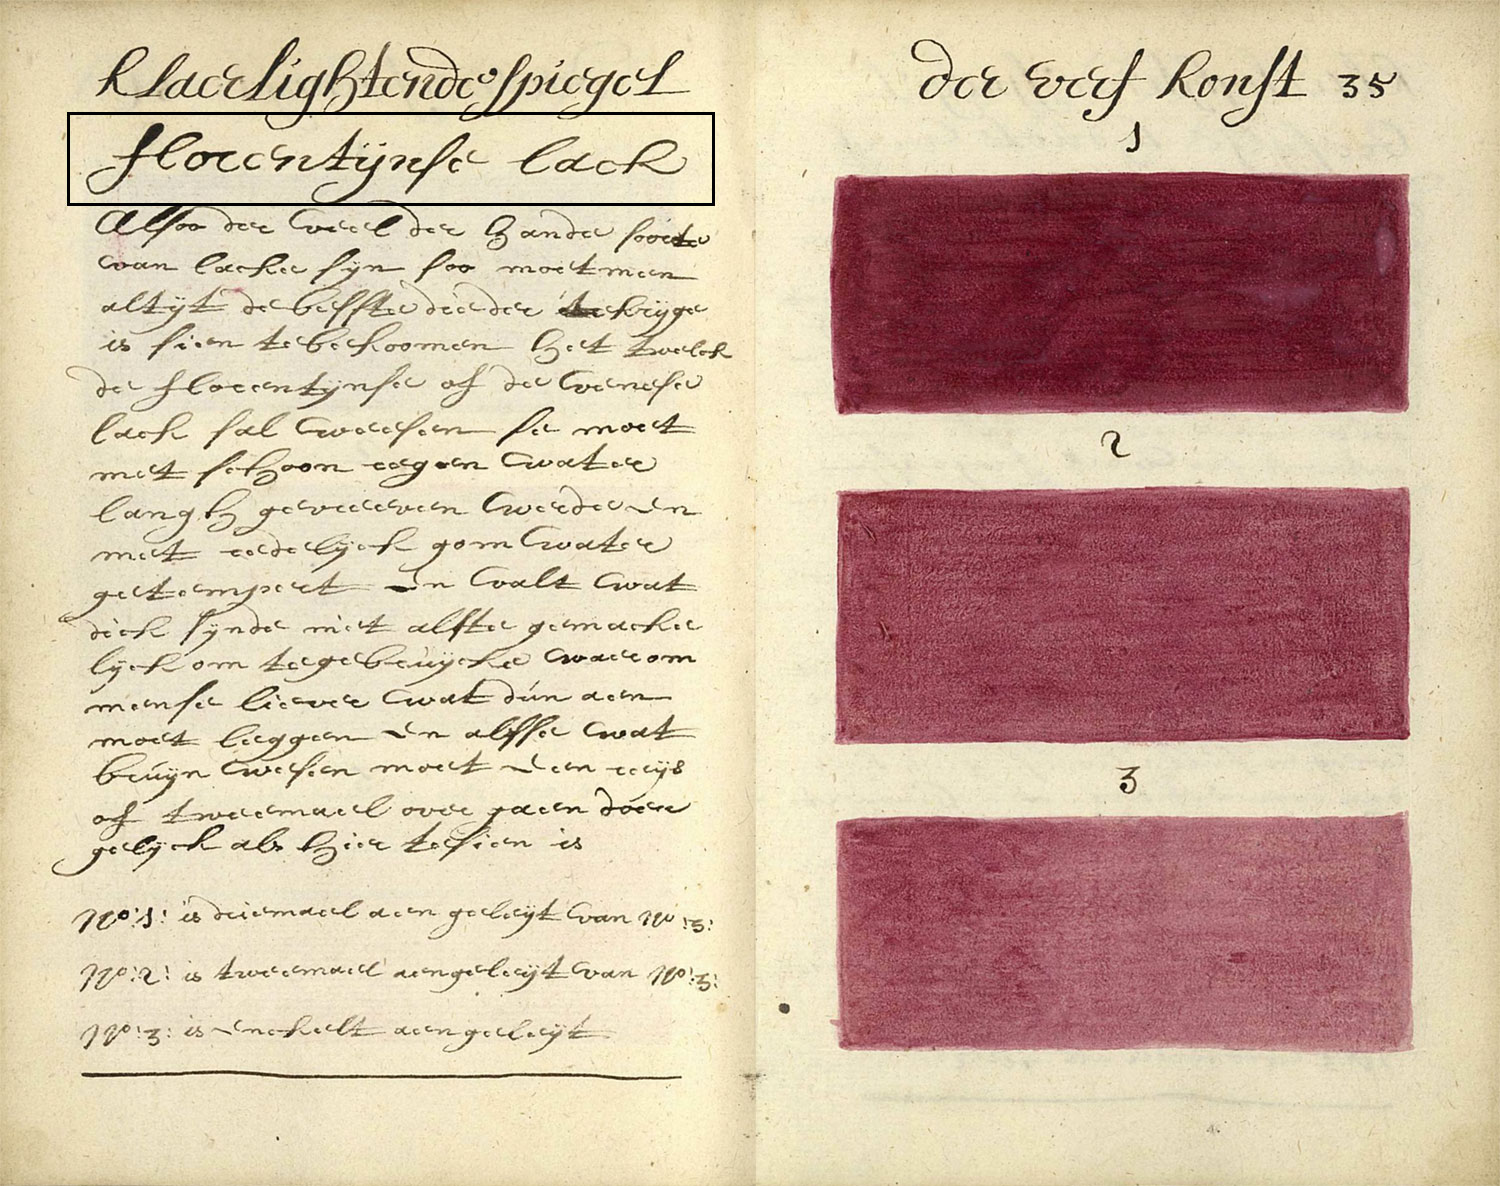 klaerlightende spiegel
florentÿnse lack
Alsoo der veel der hande soorte
van lacke sÿn soo moet men
altÿt de besste die der krÿge
is sien te bekoomen het twelck
de florentÿnse of de venese
lack sal weesen se moet
met schoon regen water
langh gevreeven werden en
met redelÿck gom water
getempert en valt wat
dick sÿnde met alste gemacke
lÿck om te gebruÿcke waerom
mense liever wat dun aen
moet leggen en alsse wat
bruÿn wesen moet een reÿs
of tweemael over gaen doen
gelÿck als hier te sien is
No:1: is driemael aen geleÿt van No:3:
No:2: is tweemael aengeleÿt van No:3:
No:3: is enckelt aengeleÿt
der verf konst 35
1
2
3